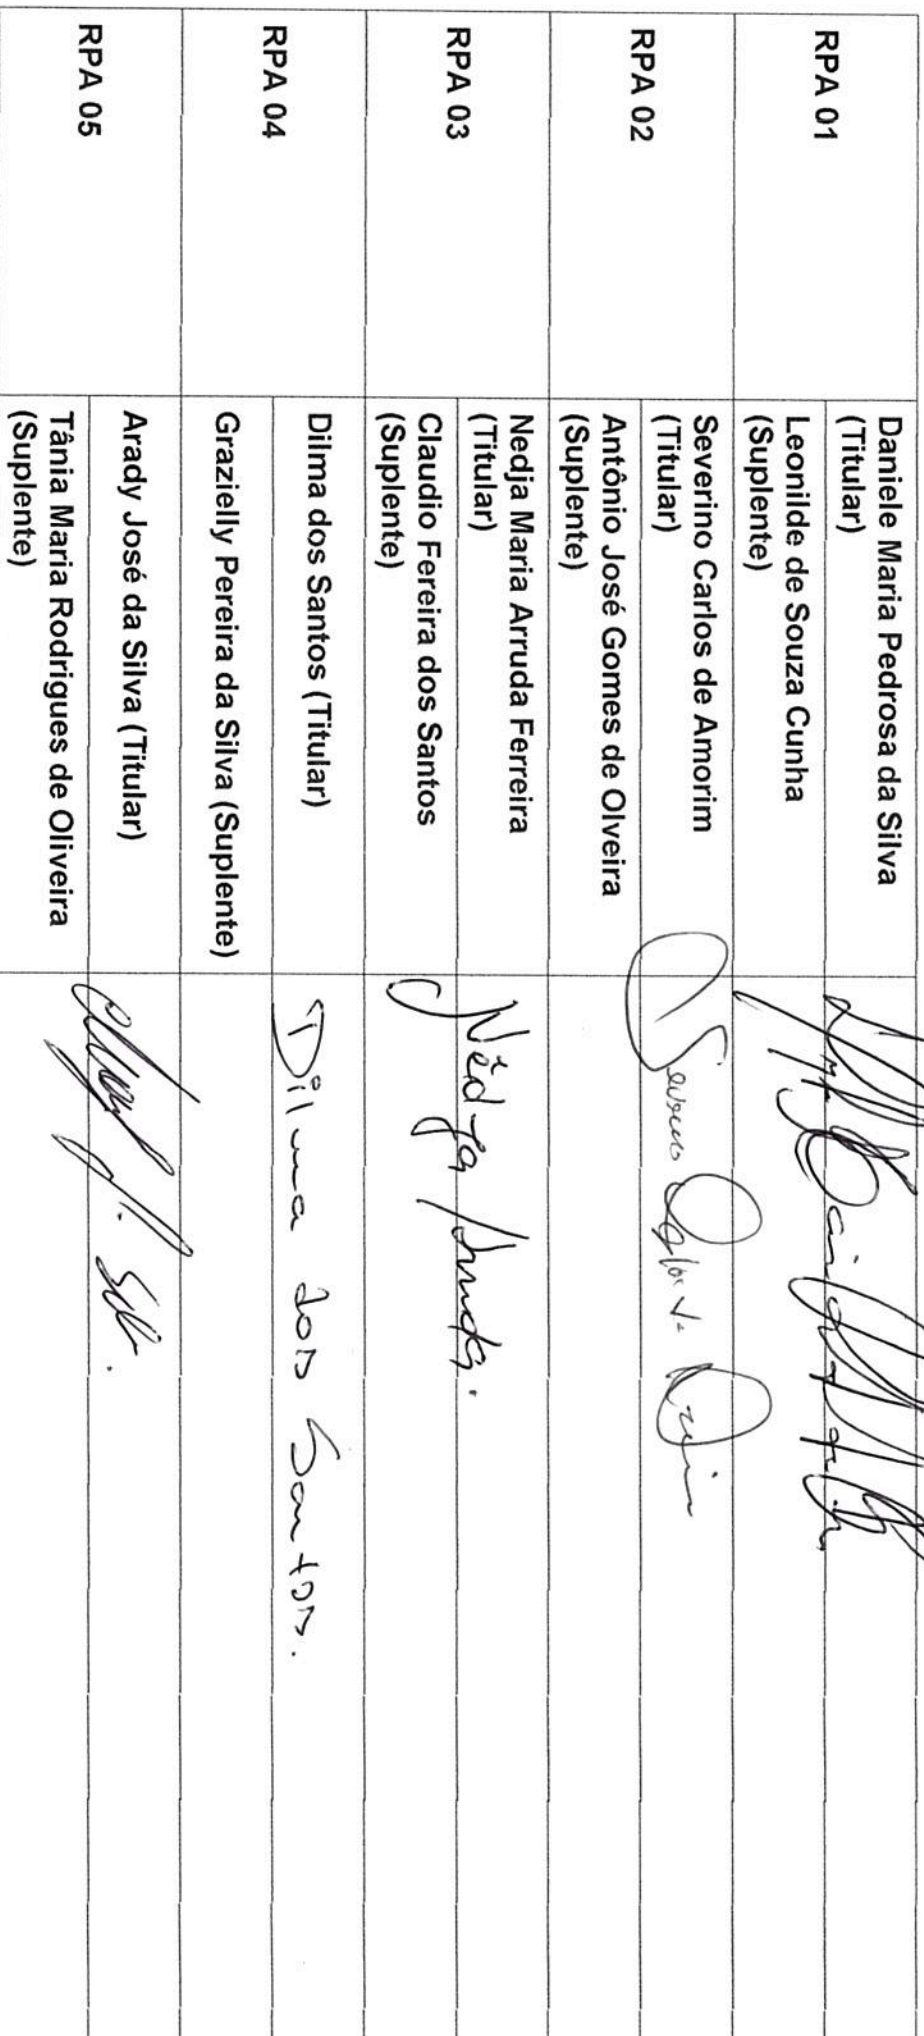 RPA 01
Daniele Maria Pedrosa da Silva
(Titular)
Leonilde de Souza Cunha
(Suplente)
RPA 02
Severino Carlos de Amorim
(Titular)
Antônio José Gomes de Olveira
(Suplente)
RPA 03
Nedja Maria Arruda Ferreira
(Titular)
Nédja Arruda.
Claudio Fereira dos Santos
(Suplente)
RPA 04
Dilma dos Santos (Titular)
Dilma dos Santos.
Grazielly Pereira da Silva (Suplente)
RPA 05
Arady José da Silva (Titular)
Tânia Maria Rodrigues de Oliveira
(Suplente)